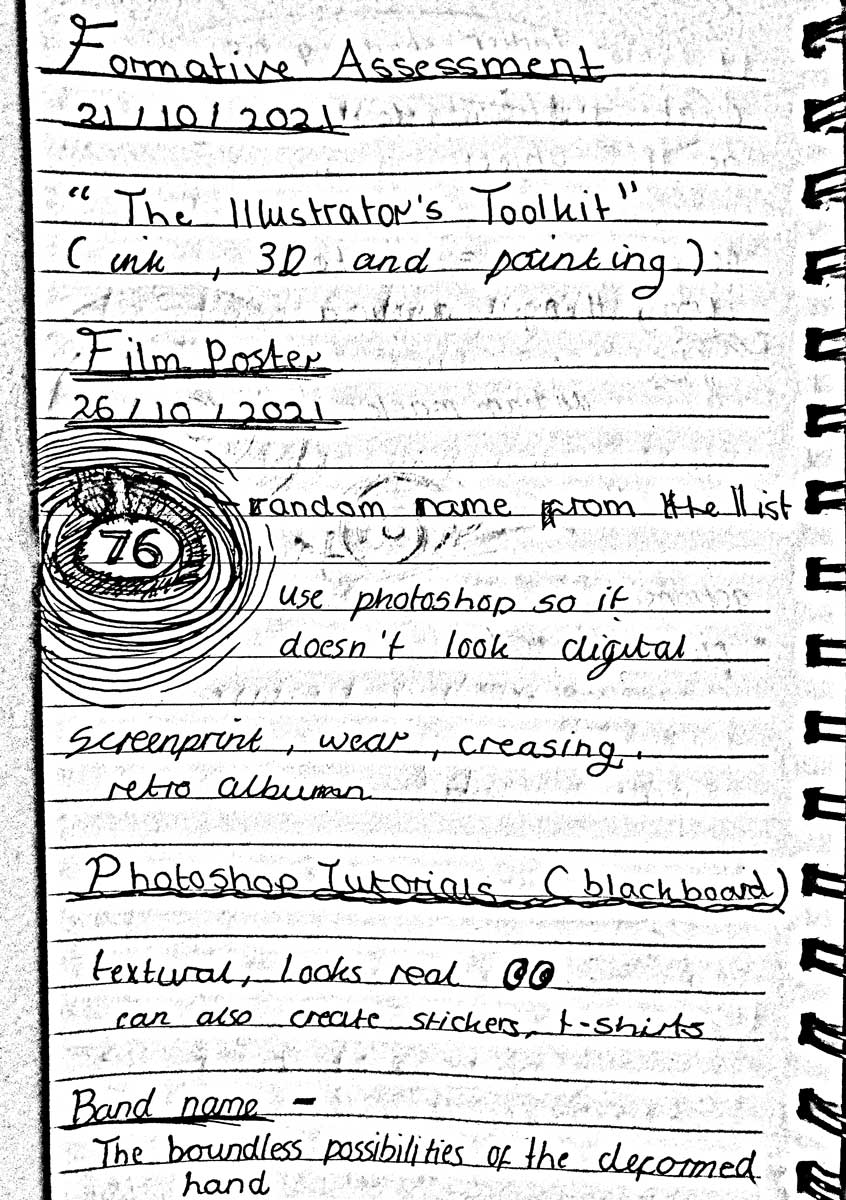 Formative Assessment
21/10/2021
"The Illustrator's Toolkit"
(ink, 3D and painting)
Film Poster
26/10/2021
random name from the list
76
use photoshop so it
doesn't look digital
Screenprint, wear, creasing.
retro
Photoshop Tutorials (blackboard)
textural, looks real
can also create stickers, t-shirts
Band name -
The boundless possibilities of the deformed
hand